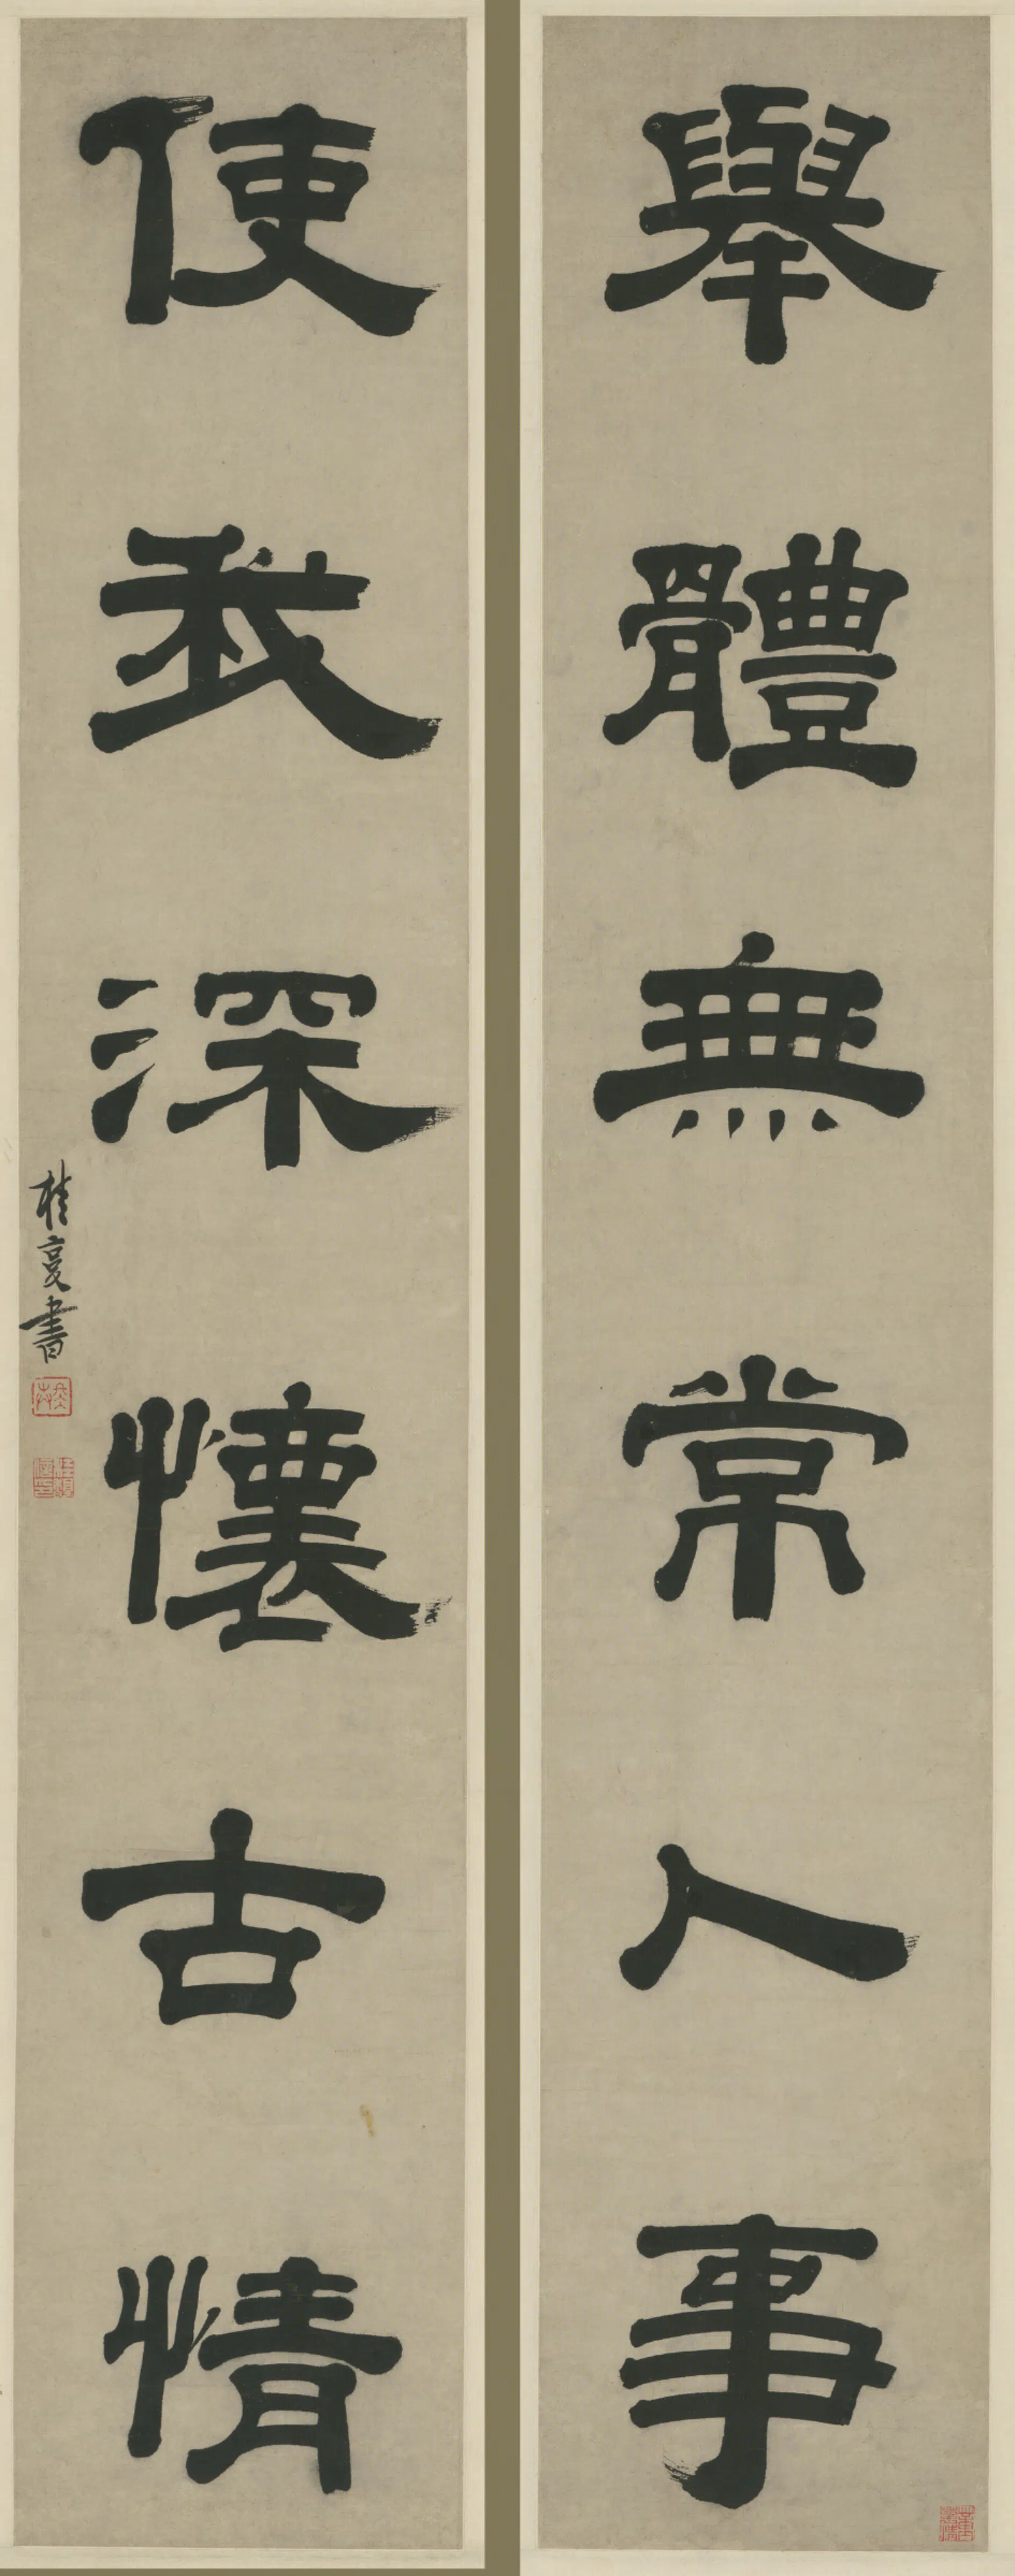 舉體無常人事
使我深懷古情
桂馥書